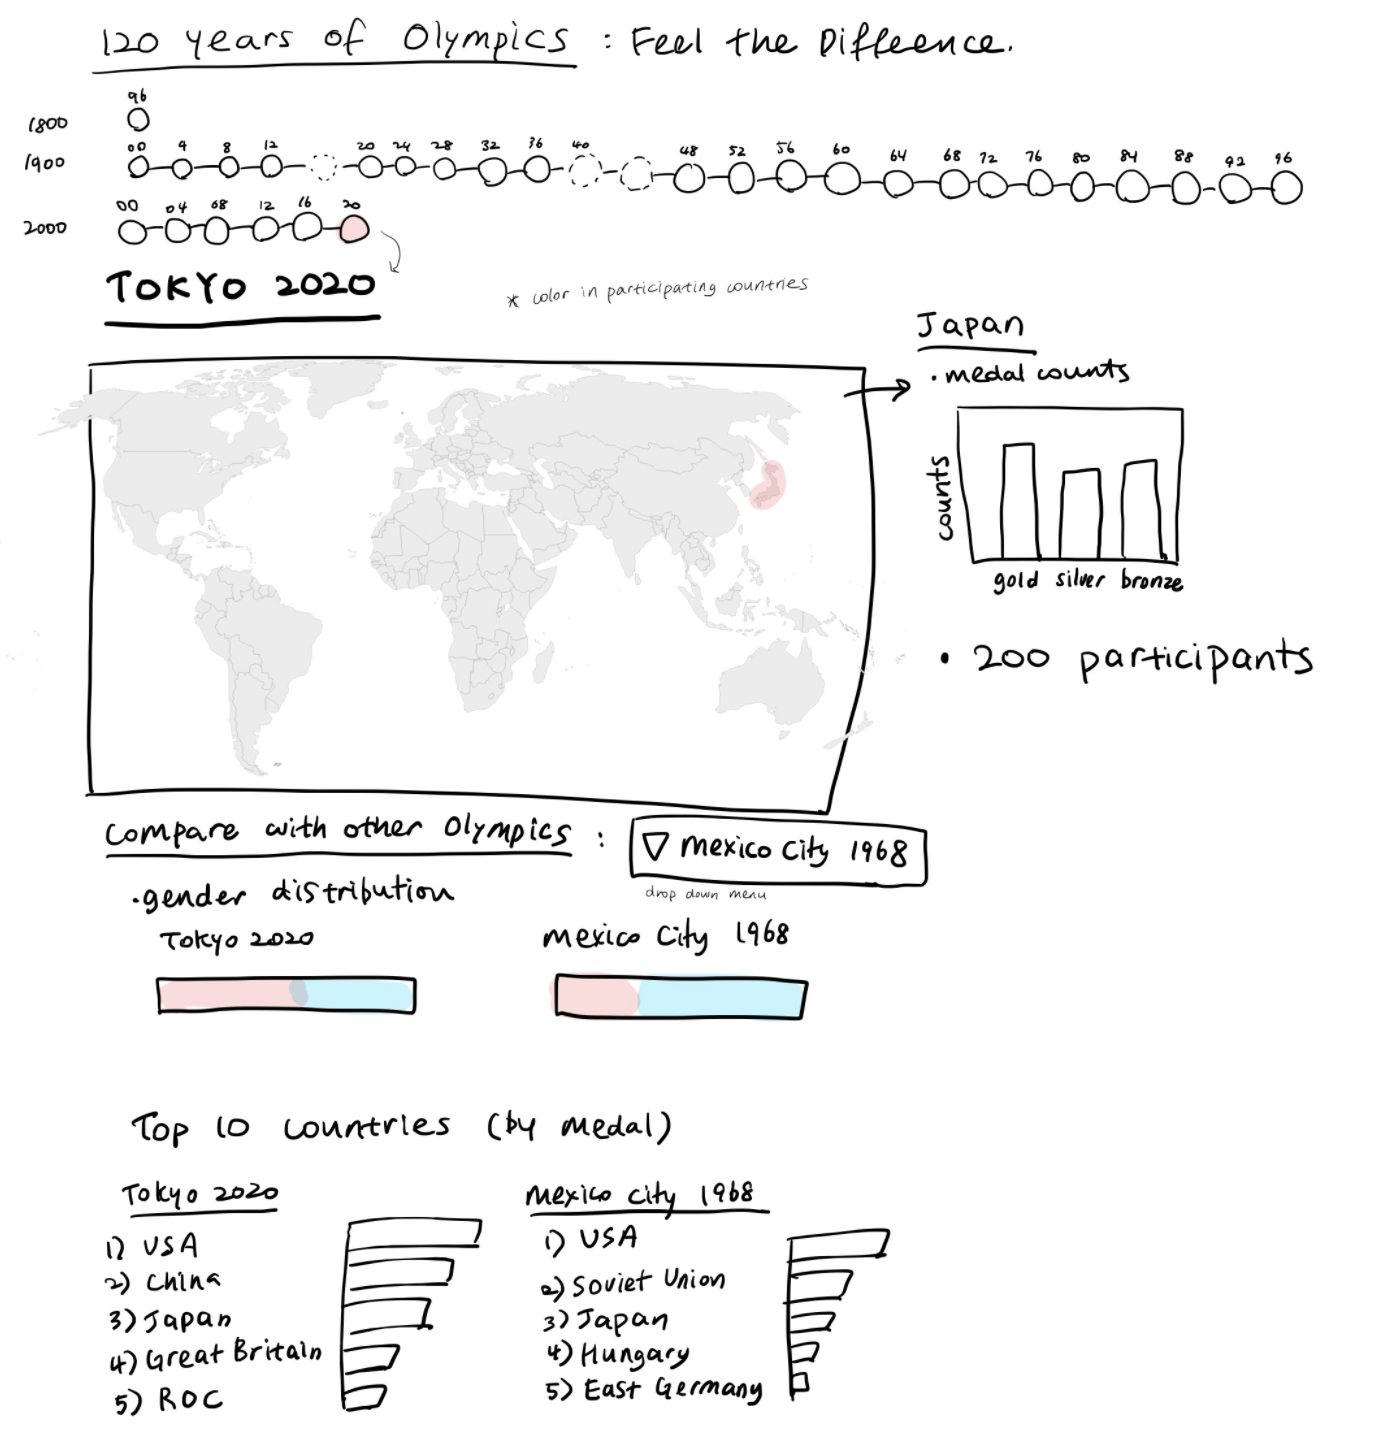 120 years of Olympics : Feel the Diffeence.
96
1800
00 4 8 12 20 24 28 32 36 40 48 52 56 60 64 68 72 76 80 84 88 92 96
1900
00 04 08 12 16 20
2000
TOKYO 2020
* color in participating countries
Japan
• medal counts
counts
gold silver bronze
• 200 participants
Compare with other Olympics :
▽ Mexico City 1968
drop down menu
• gender distribution
Tokyo 2020
Mexico City 1968
Top 10 countries (by medal)
Tokyo 2020
1) USA
2) China
3) Japan
4) Great Britain
5) ROC
Mexico City 1968
1) USA
2) Soviet Union
3) Japan
4) Hungary
5) East Germany